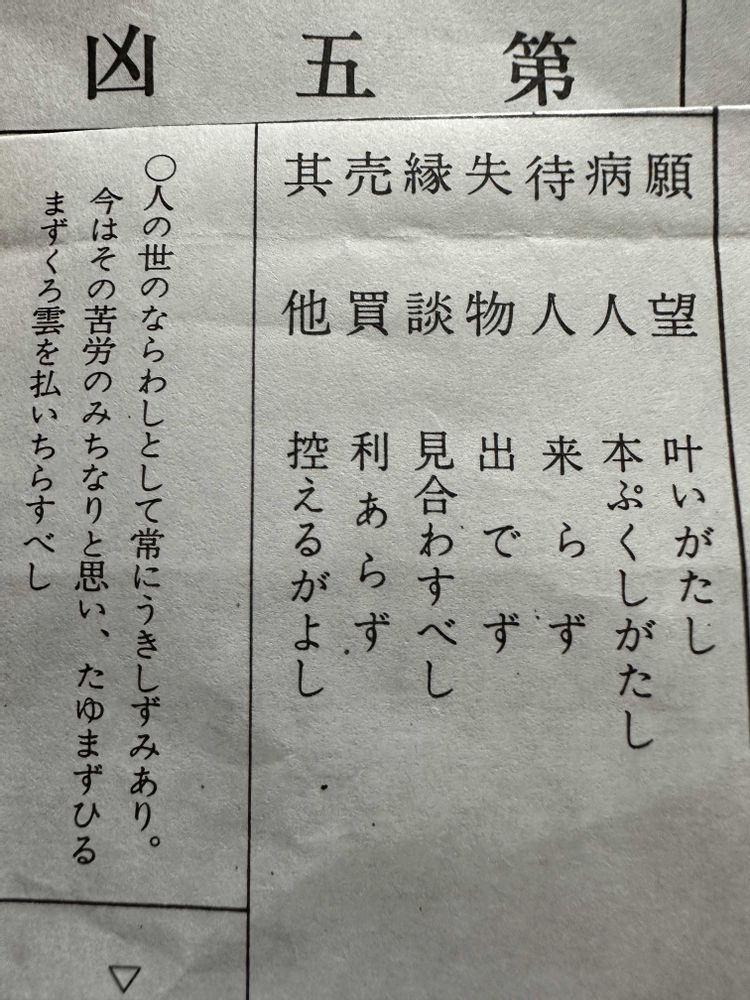 第五凶
願望 叶いがたし
病人 本ぷくしがたし
待人 来らず
失物 出でず
縁談 見合わすべし
売買 利あらず
其他 控えるがよし
○人の世のならわしとして常にうきしずみあり。
今はその苦労のみちなりと思い、たゆまずひる
まずくろ雲を払いちらすべし
▽